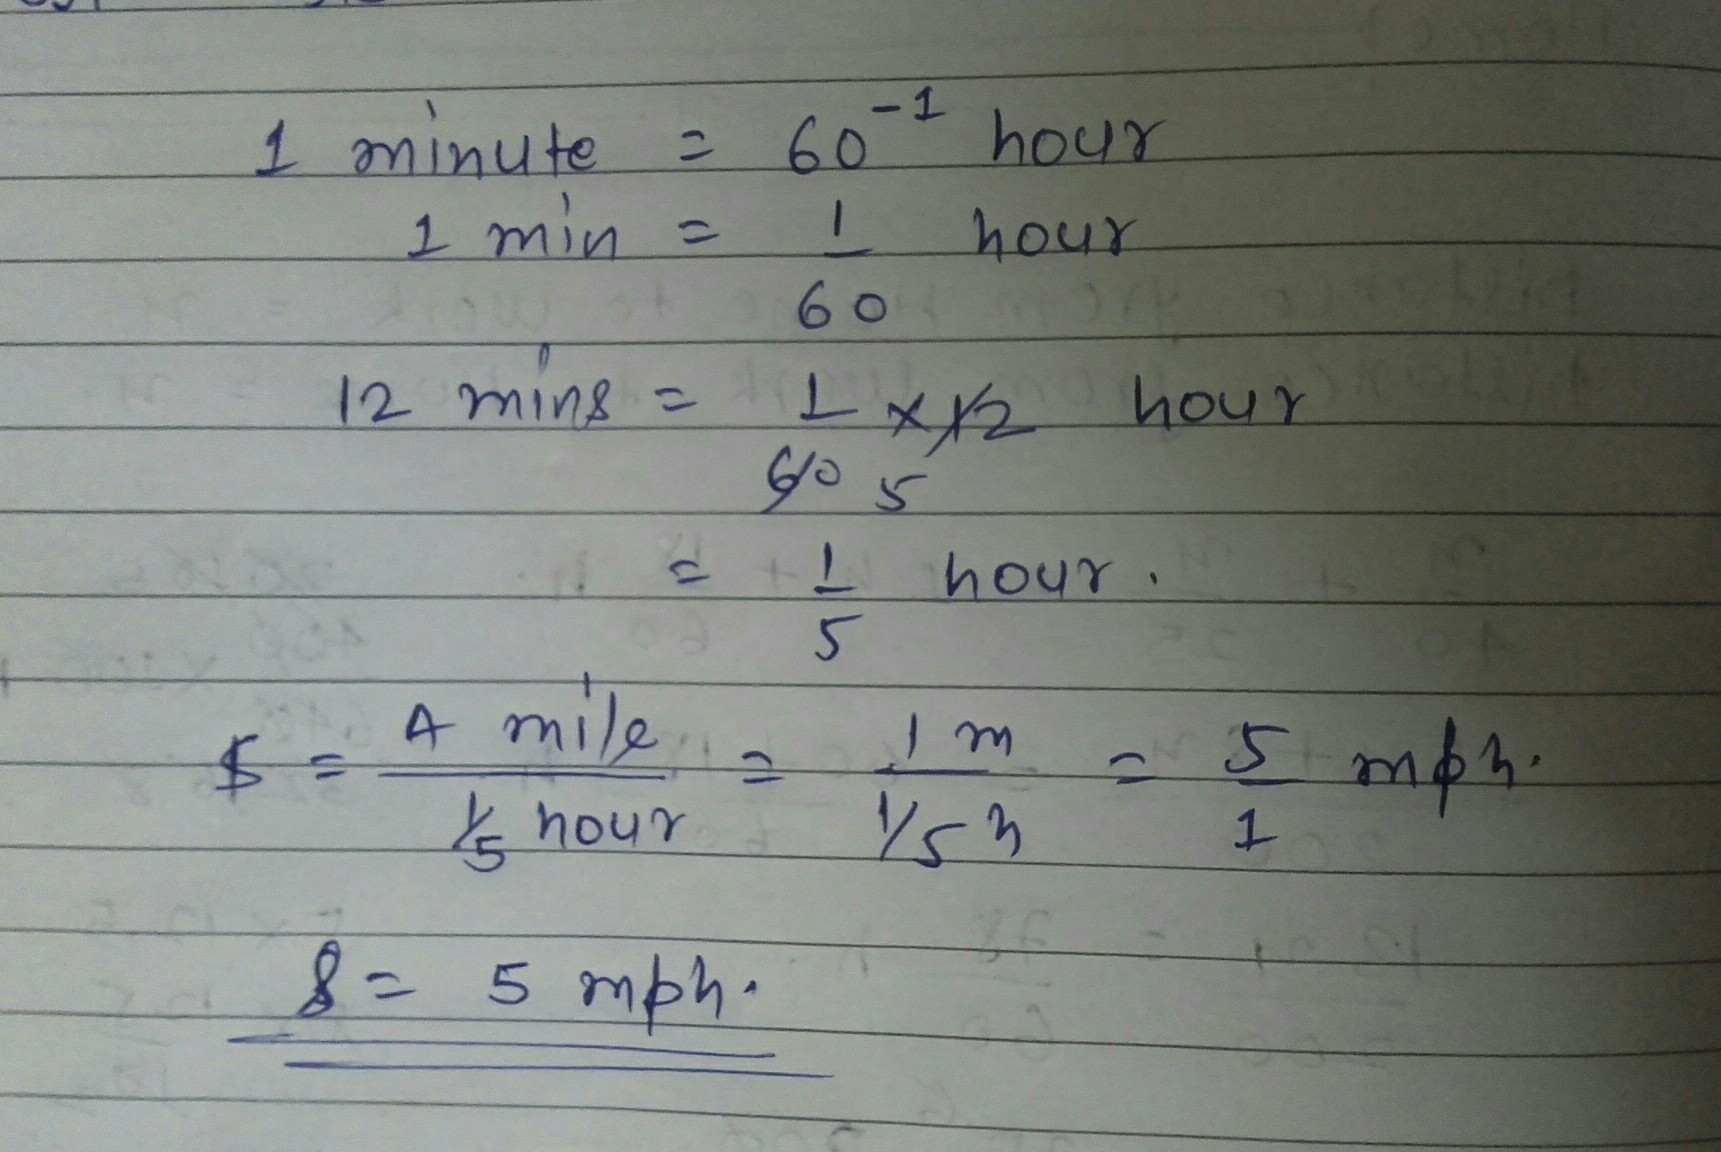 1 minute = 60⁻¹ hour
1 min = 1/60 hour
12 mins = 1/60 × 12 hour
5
= 1/5 hour.
S = A mile / 1/5 hour = 1 m / 1/5 h = 5/1 mph.
S = 5 mph.